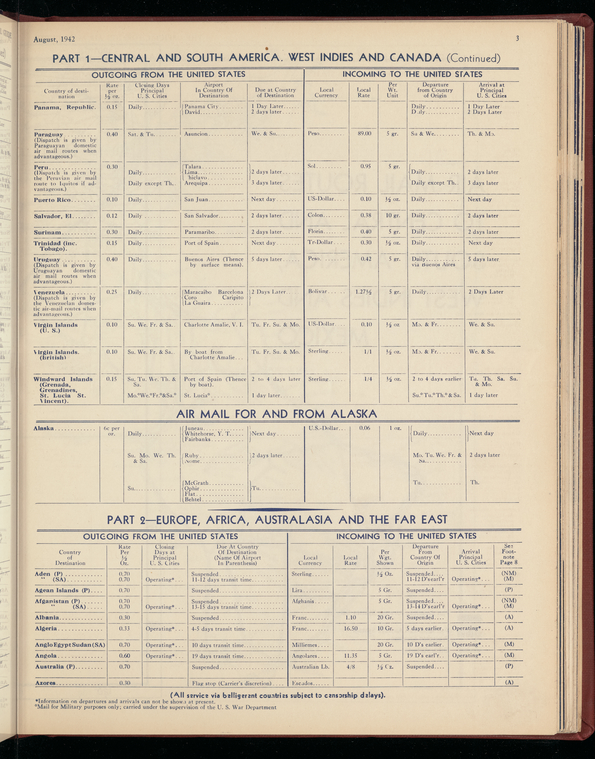 August, 1942
3
PART 1—CENTRAL AND SOUTH AMERICA. WEST INDIES AND CANADA (Continued)
OUTGOING FROM THE UNITED STATES INCOMING TO THE UNITED STATES
Country of desti-nation Rate per ½ oz. Closing Days Principal U. S. Cities Airport In Country Of Destination Due at Country of Destination Local Currency Local Rate Per Wt. Unit Departure from Country of Origin Arrival at Principal U. S. Cities
Panama, Republic. 0.15 Daily Panama City 1 Day Later Daily 1 Day Later
David 2 days later Daily 2 Days Later
Paraguay 0.40 Sat. & Tu. Asuncion We. & Su. Peso 89.00 5 gr. Su & We. Th. & Mo.
(Dispatch is given by
Paraguayan domestic
air mail routes when
advantageous.)
Peru 0.30 Talara Sol 0.95 5 gr.
(Dispatch is given by Daily Lima 2 days later Daily 2 days later
the Peruvian air mail Chiclayo
route to Iquitos if ad- Daily except Th. Arequipa 3 days later Daily except Th. 3 days later
vantageous.)
Puerto Rico 0.10 Daily San Juan Next day US-Dollar 0.10 ½ oz. Daily Next day
Salvador, El 0.12 Daily San Salvador 2 days later Colon 0.38 10 gr. Daily 2 days later
Surinam 0.30 Daily Paramaribo 2 days later Florin 0.40 5 gr. Daily 2 days later
Trinidad (inc. 0.15 Daily Port of Spain Next day Tr-Dollar 0.30 ½ oz. Daily Next day
Tobago).
Uruguay 0.40 Daily Buenos Aires (Thence 5 days later Peso 0.42 5 gr. Daily 5 days later
(Dispatch is given by by surface means). via Buenos Aires
Uruguayan domestic
air mail routes when
advantageous.)
Venezuela 0.25 Daily Maracaibo Barcelona 2 Days Later Bolivar 1.27½ 5 gr. Daily 2 Days Later
(Dispatch is given by Coro Caripito
the Venezuelan domes- La Guaira
tic air-mail routes when
advantageous.)
Virgin Islands 0.10 Su. We. Fr. & Sa. Charlotte Amalie, V. I. Tu. Fr. Su. & Mo. US-Dollar 0.10 ½ oz Mo. & Fr. We. & Sa.
(U. S.)
Virgin Islands. 0.10 Su. We. Fr. & Sa. By boat from Tu. Fr. Su. & Mo. Sterling 1/1 ½ oz. Mo. & Fr. We. & Sa.
(British) Charlotte Amalie
Windward Islands 0.15 Su. Tu. We. Th. & Port of Spain (Thence 2 to 4 days later Sterling 1/4 ½ oz. 2 to 4 days earlier Tu. Th. Sa. Su.
(Grenada, Sa. by boat). & Mo.
Grenadines,
St. Lucia St. Mo.*We.*Fr.*&Su.* St. Lucia* 1 day later Su.* Tu.*Th.* & Sa. 1 day later
Vincent).
AIR MAIL FOR AND FROM ALASKA
Alaska 6c per Juneau U.S.-Dollar 0.06 1 oz.
oz. Daily Whitehorse, Y. T. Next day Daily Next day
Fairbanks
Su. Mo. We. Th. Ruby 2 days later Mo. Tu. We. Fr. & 2 days later
& Sa. Nome Sa.
McGrath Tu. Th.
Su. Ophir Tu.
Flat
Bethel
PART 2—EUROPE, AFRICA, AUSTRALASIA AND THE FAR EAST
OUTGOING FROM THE UNITED STATES INCOMING TO THE UNITED STATES
Country of Destination Rate Per ½ Oz. Closing Days at Principal U. S. Cities Due At Country Of Destination (Name Of Airport In Parenthesis) Local Currency Local Rate Per Wgt. Shown Departure From Country Of Origin Arrival Principal U. S. Cities See Foot-note Page 8
Aden (P) 0.70 Suspended Sterling ½ Oz. Suspended (NM)
" (SA) 0.70 Operating* 11-12 days transit time 11-12 D'searl'r Operating* (M)
Agean Islands (P) 0.70 Suspended Lira 5 Gr. Suspended (A)
Afganistan (P) 0.70 Suspended Afghania 5 Gr. Suspended (NM)
" (SA) 0.70 Operating* 13-15 days transit time 13-14 D'searl'r Operating* (M)
Albania 0.30 Suspended Franc 1.10 20 Gr. Suspended (A)
Algeria 0.33 Operating* 4-5 days transit time Franc 16.50 10 Gr. 5 days earlier Operating* (A)
Anglo Egypt Sudan (SA) 0.70 Operating* 10 days transit time Milliemes 20 Gr. 10 D's earlier Operating* (M)
Angola 0.60 Operating* 19 days transit time Angolares 11.35 5 Gr. 19 D's earl'r Operating* (M)
Australia (P) 0.70 Suspended Australian Lb. 4/8 ½ Oz. Suspended (P)
Azores 0.30 Flag stop (Carrier's discretion) Escudos (A)
(All service via belligerent countries subject to censorship delays).
*Information on departures and arrivals can not be shown at present.
*Mail for Military purposes only; carried under the supervision of the U. S. War Department